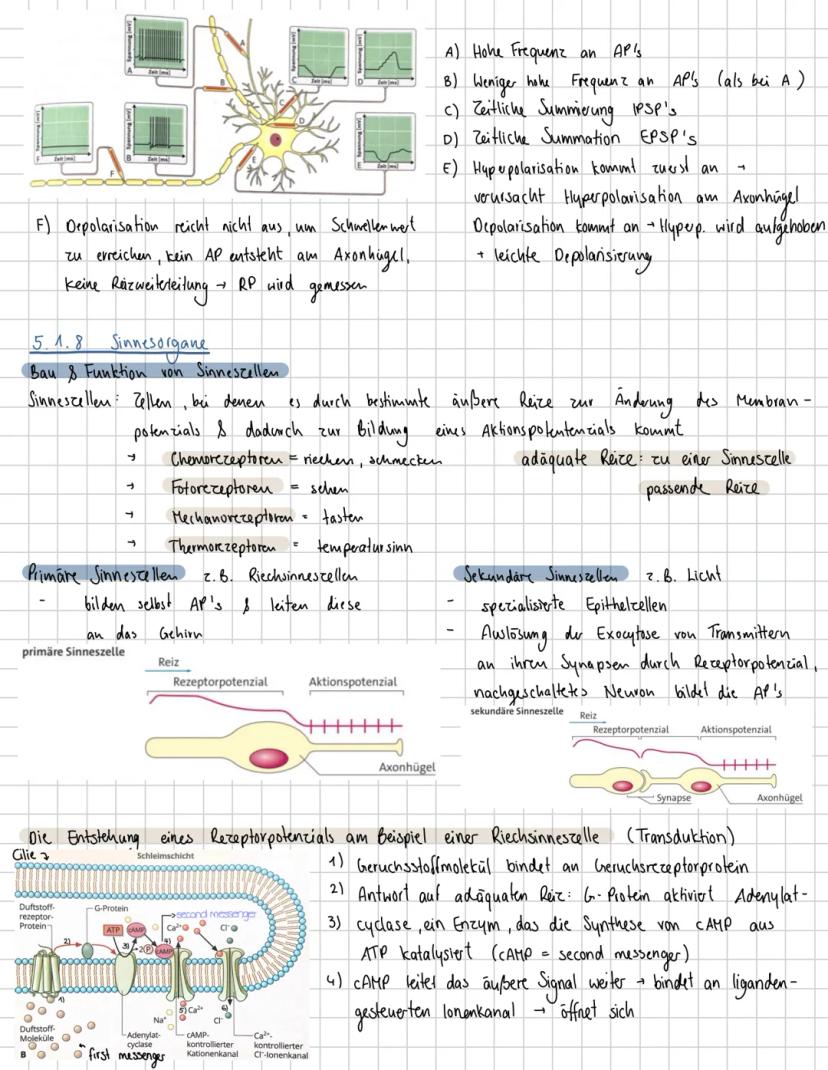 Spannung [mV]
Zeit [ms]
A
Spannung [mV]
Zeit [ms]
C
Spannung [mV]
Zeit [ms]
D
Spannung [mV]
Zeit [ms]
F
Spannung [mV]
Zeit [ms]
B
Spannung [mV]
Zeit [ms]
E
A
B
C
D
E
F
A) Hohe Frequenz an AP's
B) Weniger hohe Frequenz an AP's (als bei A)
C) Zeitliche Summierung IPSP's
D) Zeitliche Summation EPSP's
E) Hyperpolarisation kommt zuerst an →
verursacht Hyperpolarisation am Axonhügel
Depolarisation kommt an → Hyperp. wird aufgehoben
+ leichte Depolarisierung
F) Depolarisation reicht nicht aus, um Schwellenwert
zu erreichen, kein AP entsteht am Axonhügel,
keine Reizweiterleitung → RP wird gemessen
5.1.8 Sinnesorgane
Bau & Funktion von Sinneszellen
Sinneszellen: Zellen, bei denen es durch bestimmte äußere Reize zur Änderung des Membran-
potenzials & dadurch zur Bildung eines Aktionspotentenzials kommt
→ Chemorezeptoren = riechen, schmecken
adäquate Reize: zu einer Sinneszelle
passende Reize
→ Fotorezeptoren = sehen
→ Mechanorezeptoren = tasten
→ Thermorezeptoren = temperatursinn
Primäre Sinneszellen z.B. Riechsinneszellen
- bilden selbst AP's & leiten diese
an das Gehirn
primäre Sinneszelle
Reiz
Rezeptorpotenzial Aktionspotenzial
Axonhügel
Sekundäre Sinneszellen z.B. Licht
- spezialisierte Epithelzellen
- Auslösung der Exocytose von Transmittern
an ihren Synapsen durch Rezeptorpotenzial,
nachgeschaltetes Neuron bildet die AP's
sekundäre Sinneszelle
Reiz
Rezeptorpotenzial Aktionspotenzial
Synapse Axonhügel
Die Entstehung eines Rezeptorpotenzials am Beispiel einer Riechsinneszelle (Transduktion)
Cilie
Schleimschicht
Duftstoff-
rezeptor-
Protein
G-Protein
→ second messenger
ATP
cAMP
Ca²⁺
Cl⁻
2)
3)
2 P
cAMP
4)
1)
5) Ca²⁺
6)
Na⁺
Cl⁻
Duftstoff-
Moleküle
Adenylat-
cyclase
cAMP-
kontrollierter
Kationenkanal
Ca²⁺-
kontrollierter
Cl⁻-Ionenkanal
B
first messenger
1) Geruchsstoffmolekül bindet an Geruchsrezeptorprotein
2) Antwort auf adäquaten Reiz: G-Protein aktiviert Adenylat-
3) cyclase, ein Enzym, das die Synthese von cAMP aus
ATP katalysiert (cAMP = second messenger)
4) cAMP leitet das äußere Signal weiter → bindet an liganden-
gesteuerten Ionenkanal → öffnet sich